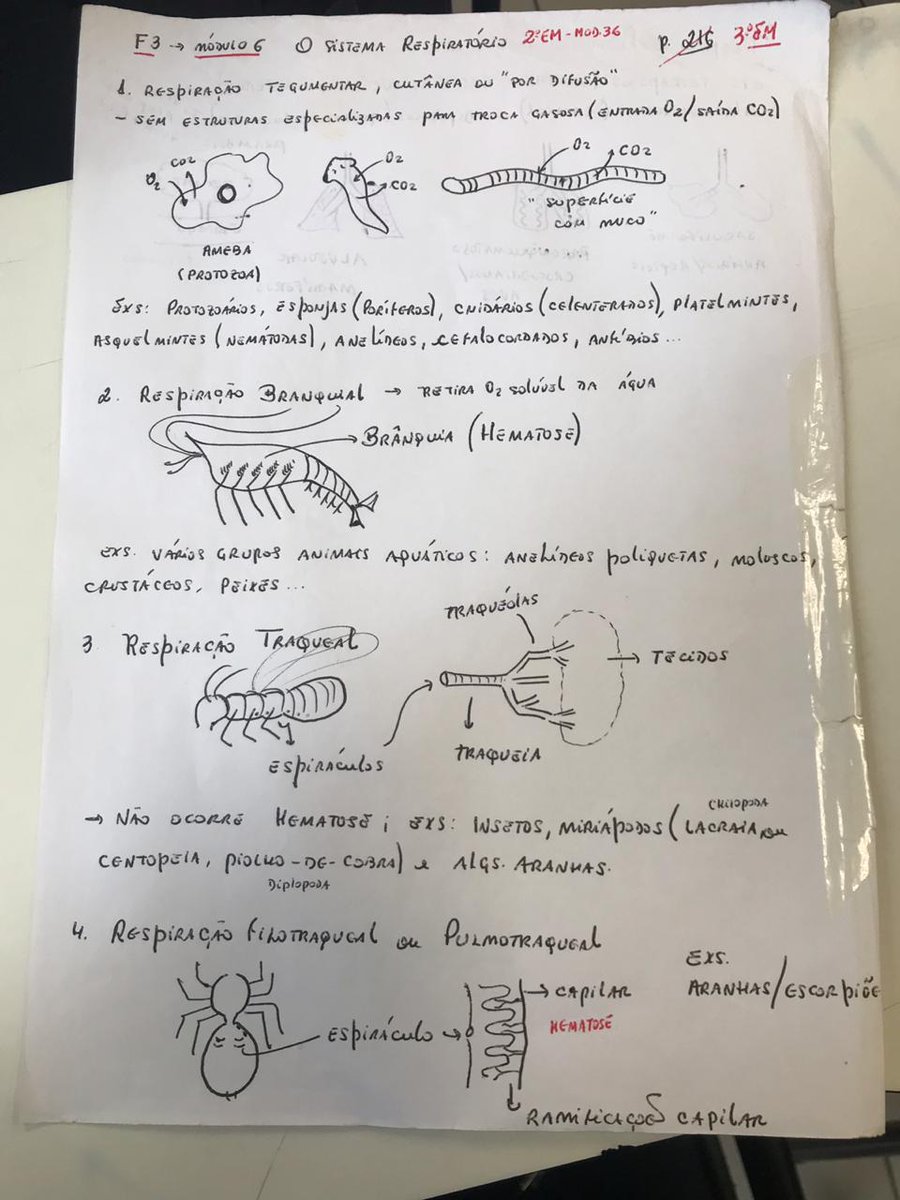 F3 → MÓDULO 6 O SISTEMA RESPIRATÓRIO 2ºEM-MOD.36 p. 216 3ºEM
1. RESPIRAÇÃO TEGUMENTAR, CUTÂNEA OU "POR DIFUSÃO"
- SEM ESTRUTURAS ESPECIALIZADAS PARA TROCA GASOSA (ENTRADA O2/SAÍDA CO2)
O2 CO2
O2
CO2
O2 CO2
"SUPERFÍCIE
COM MUCO"
AMEBA
(PROTOZOA)
EXS: PROTOZOÁRIOS, ESPONJAS (PORÍFEROS), CNIDÁRIOS (CELENTERADOS), PLATELMINTES,
ASQUELMINTES (NEMÁTODAS), ANELÍDEOS, CEFALOCORDADOS, ANFÍBIOS...
2. RESPIRAÇÃO BRANQUIAL → RETIRA O2 SOLÚVEL DA ÁGUA
BRÂNQUIA (HEMATOSE)
EXS. VÁRIOS GRUPOS ANIMAIS AQUÁTICOS: ANELÍDEOS POLIQUETAS, MOLUSCOS,
CRUSTÁCEOS, PEIXES...
3. RESPIRAÇÃO TRAQUEAL
TRAQUÉOLAS
→ TECIDOS
ESPIRÁCULOS
TRAQUEIA
→ NÃO OCORRE HEMATOSE; EXS: INSETOS, MIRIÁPODOS (LACRAIA OU
CHILOPODA
CENTOPEIA, PIOLHO-DE-COBRA) E ALGS. ARANHAS.
DIPLOPODA
4. RESPIRAÇÃO FILOTRAQUEAL OU PULMOTRAQUEAL
EXS.
ARANHAS/ESCORPIÕE
ESPIRÁCULO →
→ CAPILAR
HEMATOSE
RAMIFICAÇÃO CAPILAR